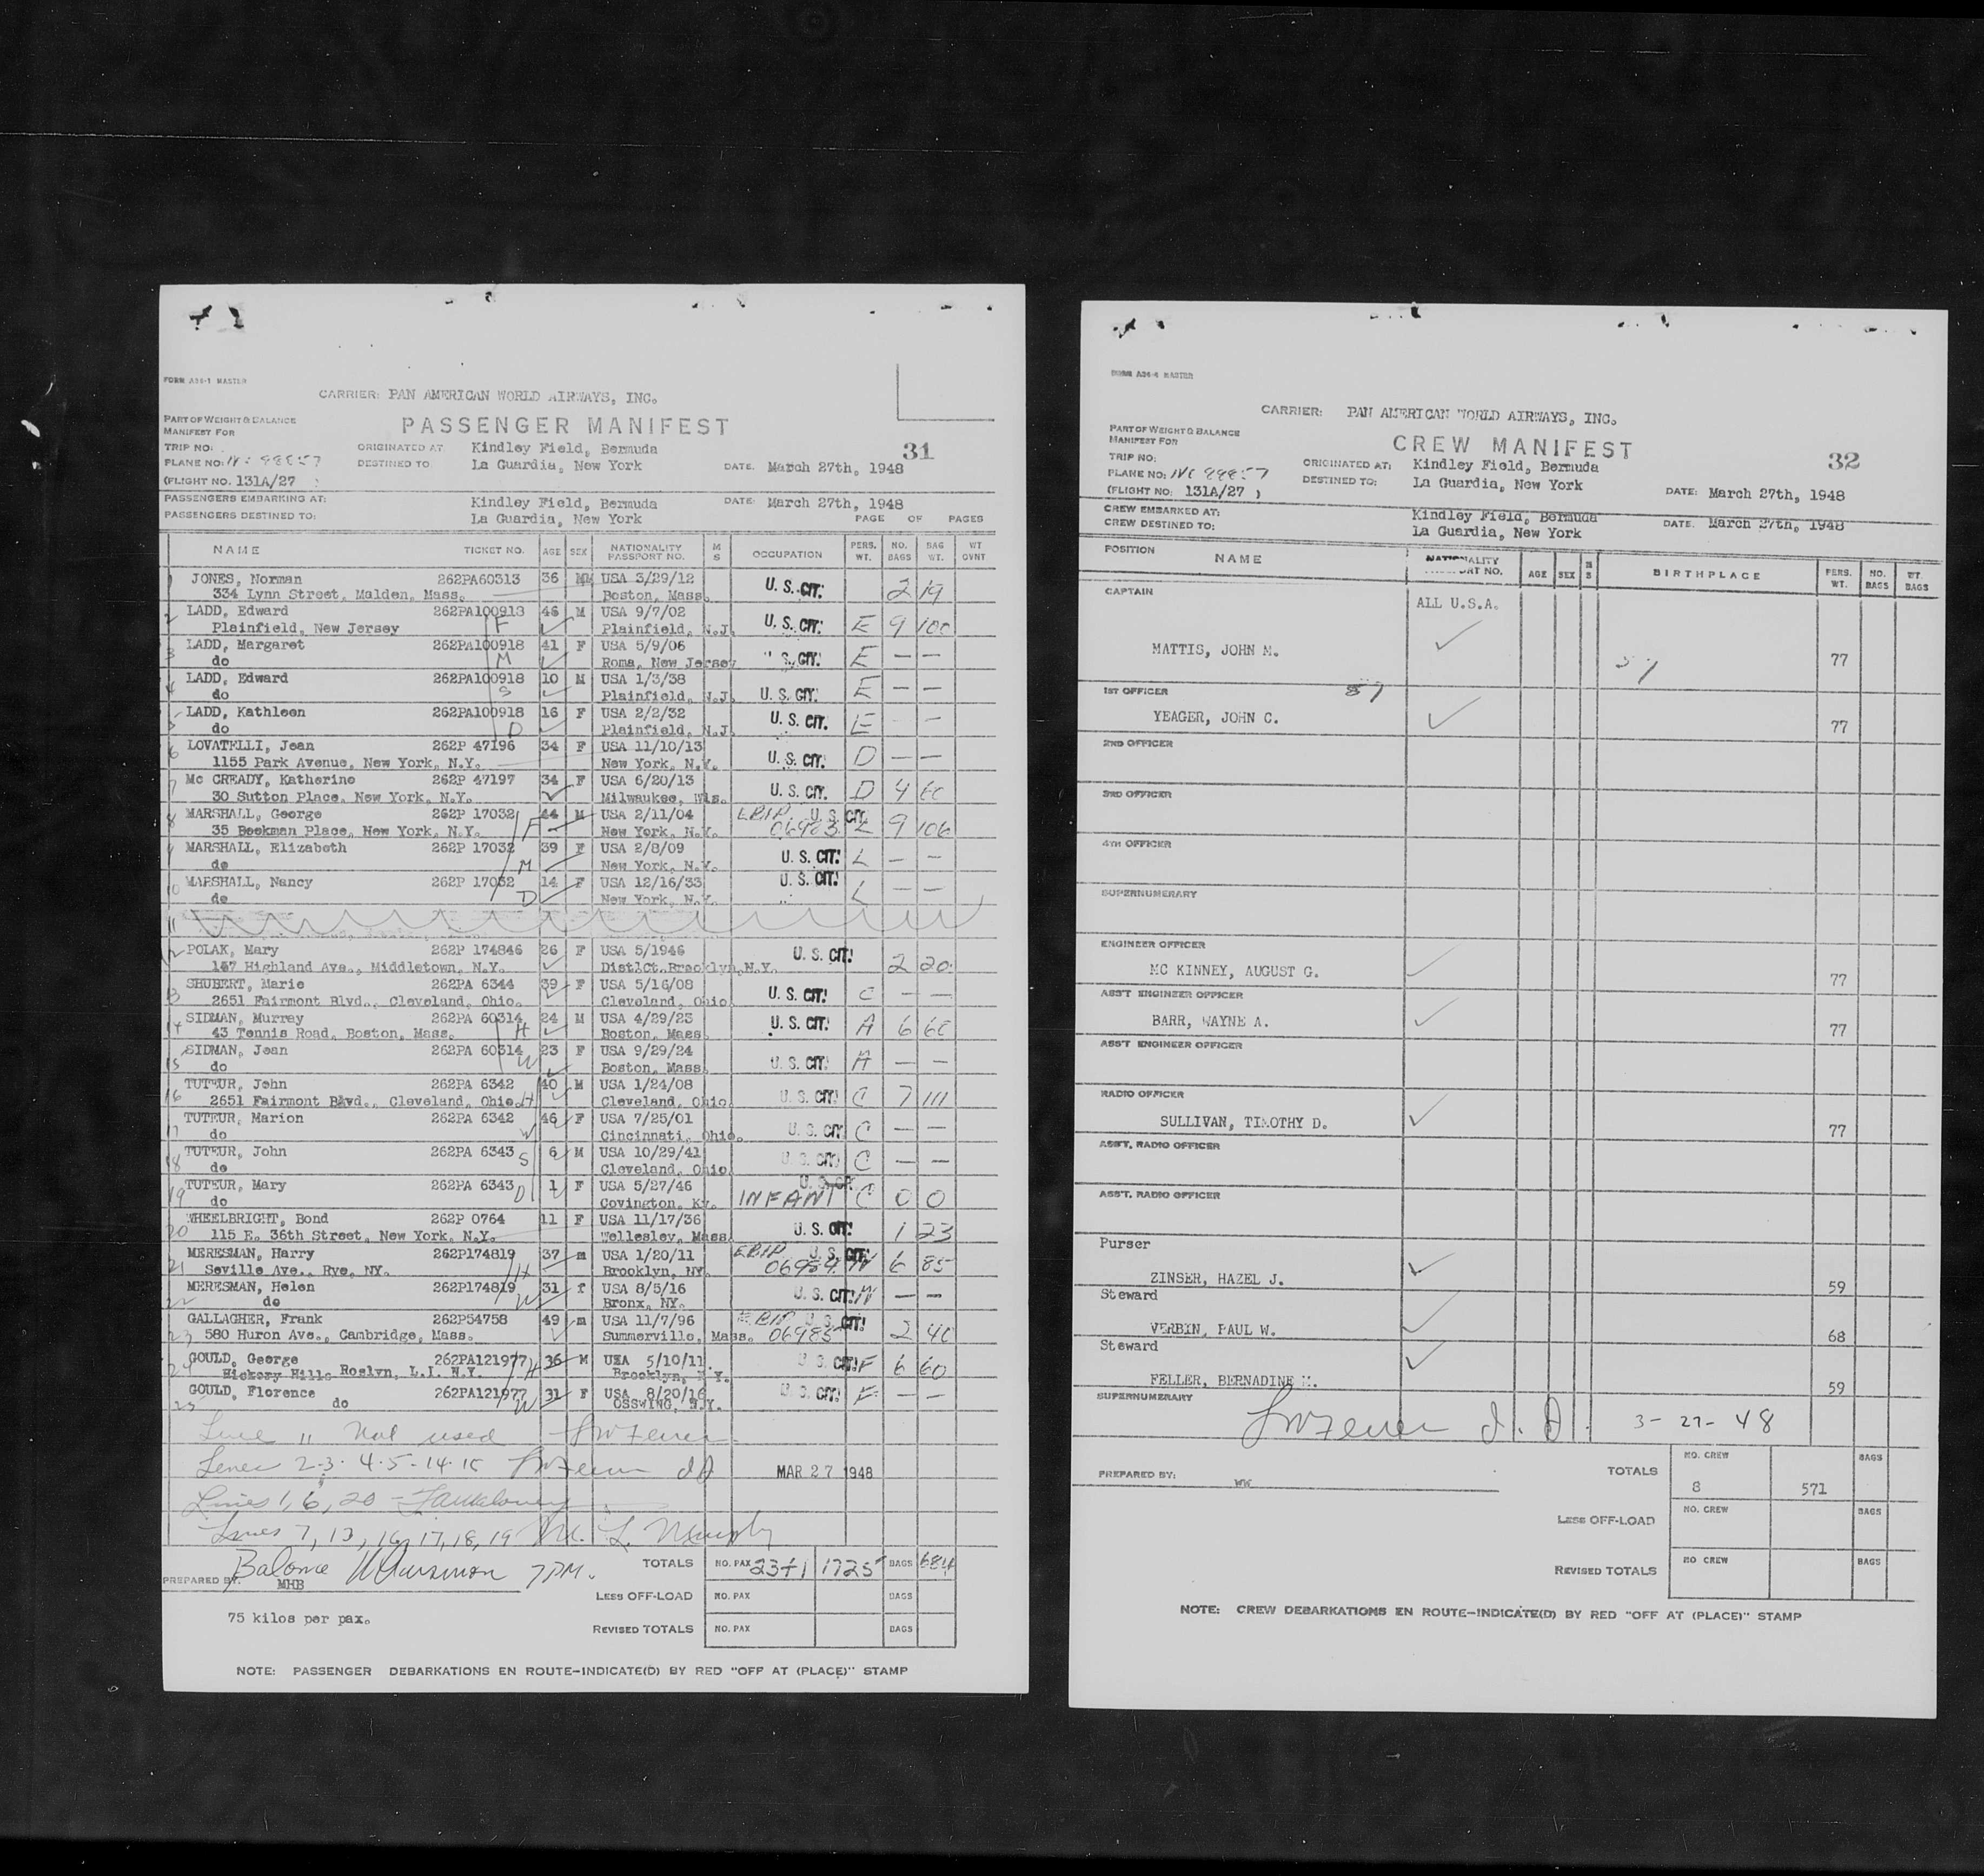 FORM A36-1 MASTER
CARRIER: PAN AMERICAN WORLD AIRWAYS, INC.
PART OF WEIGHT & BALANCE
MANIFEST FOR
PASSENGER MANIFEST
TRIP NO:
ORIGINATED AT Kindley Field, Bermuda
31
PLANE NO: NC 88857
DESTINED TO La Guardia, New York
DATE. March 27th, 1948
(FLIGHT NO. 131A/27 )
PASSENGERS EMBARKING AT: Kindley Field, Bermuda DATE: March 27th, 1948
PASSENGERS DESTINED TO: La Guardia, New York PAGE OF PAGES
NAME TICKET NO. AGE SEX NATIONALITY PASSPORT NO. M S OCCUPATION PERS. WT. NO. BAGS BAG WT. WT OVNT
1 JONES, Norman 262PA60313 36 USA 3/29/12 U. S. CIT. 2 19
334 Lynn Street, Malden, Mass. Boston, Mass.
2 LADD, Edward 262PA100918 46 M USA 9/7/02 U. S. CIT. E 9 100
Plainfield, New Jersey F Plainfield, N.J.
3 LADD, Margaret 262PA100918 41 F USA 5/9/06 U. S. CIT. E — —
do M Roma, New Jersey
4 LADD, Edward 262PA100918 10 M USA 1/3/38 U. S. CIT. E — —
do S Plainfield, N.J.
5 LADD, Kathleen 262PA100918 16 F USA 2/2/32 U. S. CIT. E — —
do D Plainfield, N.J.
6 LOVATELLI, Jean 262P 47196 34 F USA 11/10/13 U. S. CIT. D — —
1155 Park Avenue, New York, N.Y. New York, N.Y.
7 Mc CREADY, Katherine 262P 47197 34 F USA 6/20/13 U. S. CIT. D 4 60
30 Sutton Place, New York, N.Y. Milwaukee, Wis.
8 MARSHALL, George 262P 17032 44 M USA 2/11/04 U. S. CIT. L 9 106
35 Beekman Place, New York, N.Y. F New York, N.Y. 06983
9 MARSHALL, Elizabeth 262P 17032 39 F USA 2/8/09 U. S. CIT. L — —
do M New York, N.Y.
10 MARSHALL, Nancy 262P 17032 14 F USA 12/16/33 U. S. CIT. L — —
do D New York, N.Y.
11
12 POLAK, Mary 262P 174846 26 F USA 5/1946 U. S. CIT. 2 20
167 Highland Ave., Middletown, N.Y. Distict.Brooklyn,N.Y.
13 SHUBERT, Marie 262PA 6344 39 F USA 5/16/08 U. S. CIT. C — —
2651 Fairmont Blvd., Cleveland, Ohio. Cleveland, Ohio
14 SIDMAN, Murray 262PA 60314 24 M USA 4/29/23 U. S. CIT. A 6 60
43 Tennis Road, Boston, Mass. H Boston, Mass
15 SIDMAN, Jean 262PA 60314 23 F USA 9/29/24 U. S. CIT. A — —
do W Boston, Mass
16 TUTEUR, John 262PA 6342 40 M USA 1/24/08 U. S. CIT. C 7 111
2651 Fairmont Blvd., Cleveland, Ohio. H Cleveland, Ohio
17 TUTEUR, Marion 262PA 6342 46 F USA 7/25/01 U. S. CIT. C — —
do W Cincinnati, Ohio.
18 TUTEUR, John 262PA 6343 6 M USA 10/29/41 U. S. CIT. C — —
do S Cleveland, Ohio
19 TUTEUR, Mary 262PA 6343 1 F USA 5/27/46 U. S. CIT. C 0 0
do D Covington, Ky. INFANT
20 WHEELBRIGHT, Bond 262P 0764 11 F USA 11/17/36 U. S. CIT. 1 23
115 E. 36th Street, New York, N.Y. Wellesley, Mass
21 MERESMAN, Harry 262P174819 37 m USA 1/20/11 U. S. CIT. W 6 85
Seville Ave., Rye, NY. H Brooklyn, NY. 06984
22 MERESMAN, Helen 262P174819 31 f USA 8/5/16 U. S. CIT. W — —
do W Bronx, NY.
23 GALLAGHER, Frank 262P54758 49 m USA 11/7/96 U. S. CIT. 2 40
580 Huron Ave., Cambridge, Mass. Summerville, Mass. 06985
24 GOULD, George 262PA121977 H 36 M USA 5/10/11 U. S. CIT. F 6 60
Hickory Hills Roslyn, L.I. N.Y. Brooklyn, N.Y.
25 GOULD, Florence 262PA121977 31 F USA 8/20/16 U. S. CIT. F — —
do W OSSWING, N.Y.
Line 11 Not used
Lines 2-3-4-5-14-15 MAR 27 1948
Lines 1, 6, 20 -
Lines 7, 13, 16, 17, 18, 19 M. L. Murphy
TOTALS NO. PAX 23+1 1725 BAGS 684
PREPARED BY: MHB 7 PM.
LESS OFF-LOAD NO. PAX BAGS
75 kilos per pax.
REVISED TOTALS NO. PAX BAGS
NOTE: PASSENGER DEBARKATIONS EN ROUTE-INDICATE(D) BY RED "OFF AT (PLACE)" STAMP
FORM A36-4 MASTER
CARRIER: PAN AMERICAN WORLD AIRWAYS, INC.
PART OF WEIGHT & BALANCE
MANIFEST FOR
CREW MANIFEST
TRIP NO:
ORIGINATED AT: Kindley Field, Bermuda
32
PLANE NO: NC 88857
DESTINED TO: La Guardia, New York
DATE: March 27th, 1948
(FLIGHT NO: 131A/27 )
CREW EMBARKED AT: Kindley Field, Bermuda DATE. March 27th, 1948
CREW DESTINED TO: La Guardia, New York
POSITION NAME NATIONALITY PASSPORT NO. AGE SEX M S BIRTHPLACE PERS. WT. NO. BAGS WT. BAGS
CAPTAIN
ALL U.S.A.
MATTIS, JOHN M. 77
1ST OFFICER 87
YEAGER, JOHN C. 77
2ND OFFICER
3RD OFFICER
4TH OFFICER
SUPERNUMERARY
ENGINEER OFFICER
MC KINNEY, AUGUST G. 77
ASS'T ENGINEER OFFICER
BARR, WAYNE A. 77
ASS'T ENGINEER OFFICER
RADIO OFFICER
SULLIVAN, TIMOTHY D. 77
ASS'T, RADIO OFFICER
ASS'T, RADIO OFFICER
Purser
ZINSER, HAZEL J. 59
Steward
VERBIN, PAUL W. 68
Steward
FELLER, BERNADINE M. 59
SUPERNUMERARY
3-27-48
TOTALS NO. CREW 8 571 BAGS
PREPARED BY: WW
LESS OFF-LOAD NO. CREW BAGS
REVISED TOTALS NO CREW BAGS
NOTE: CREW DEBARKATIONS EN ROUTE-INDICATE(D) BY RED "OFF AT (PLACE)" STAMP